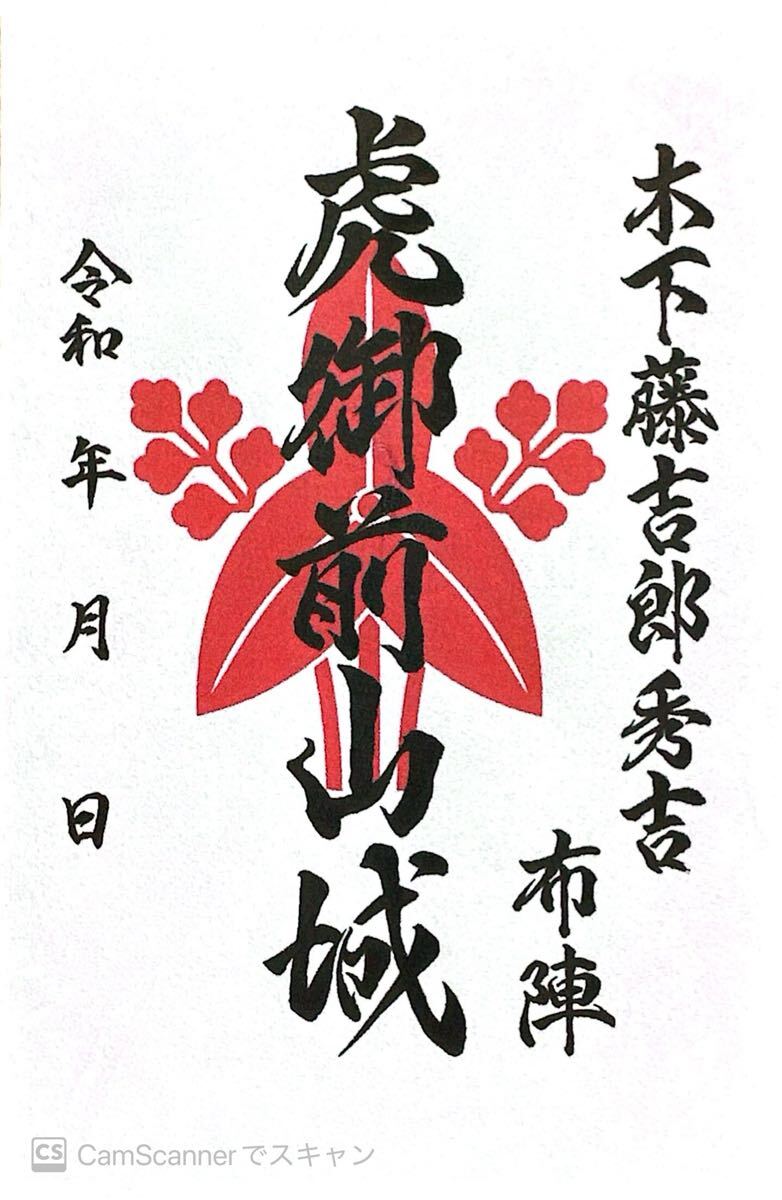 木下藤吉郎秀吉
布陣
虎御前山城
令和 年 月 日
CS CamScannerでスキャン